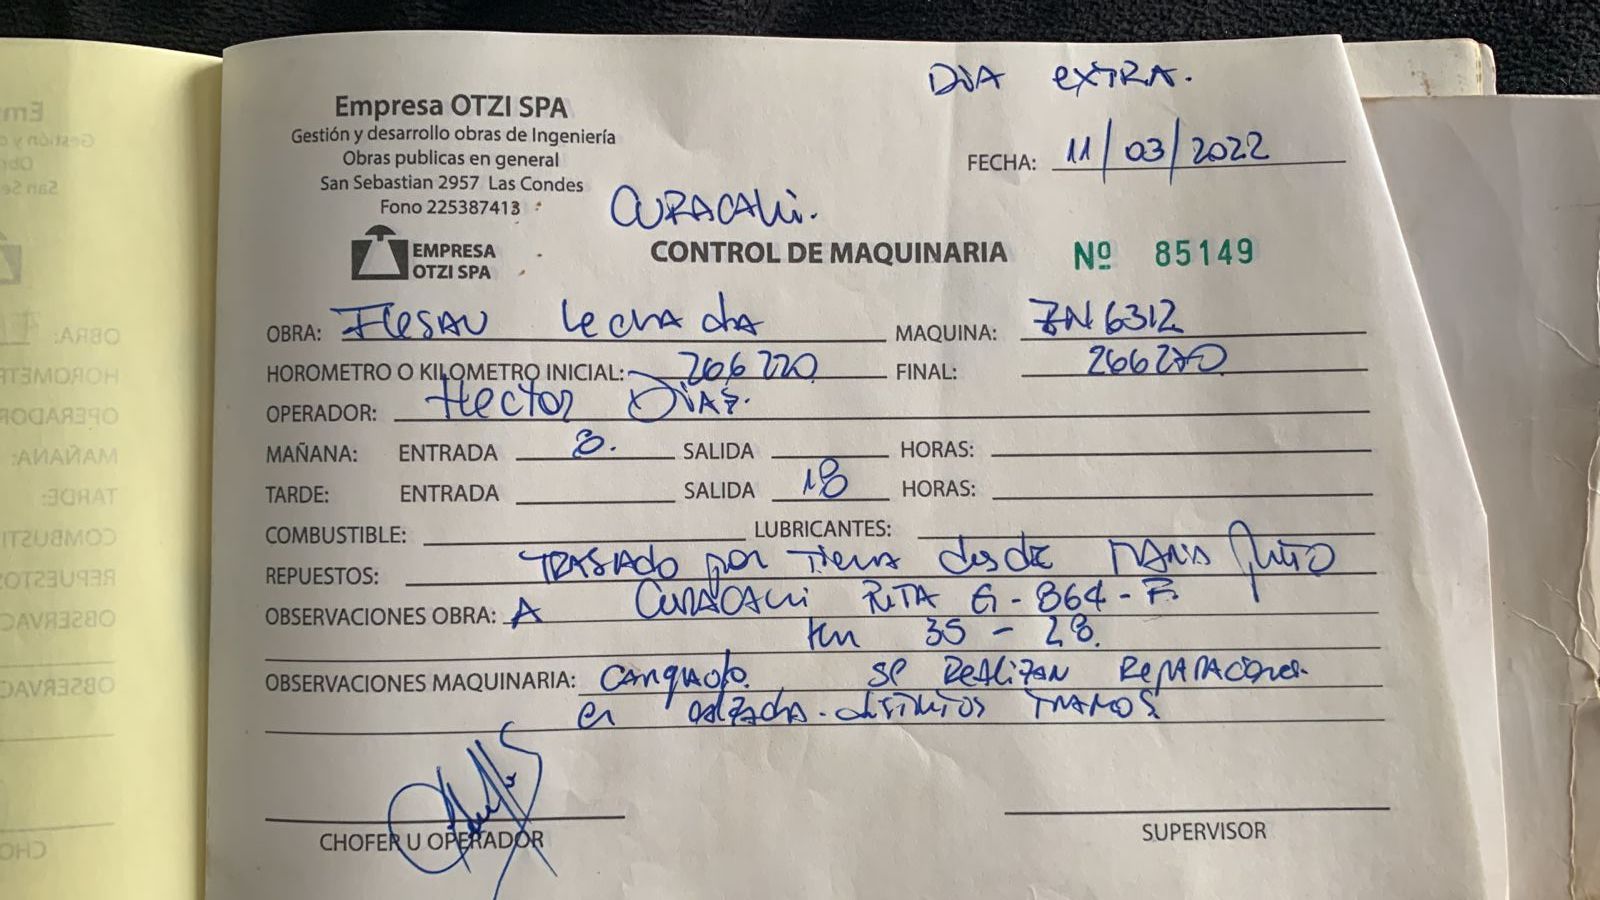 DIA EXTRA.
Empresa OTZI SPA
Gestión y desarrollo obras de Ingeniería
Obras publicas en general
San Sebastian 2957 Las Condes
Fono 225387413
FECHA: 11/03/2022
CURACAVI.
EMPRESA
OTZI SPA
CONTROL DE MAQUINARIA Nº 85149
OBRA: Flesan Lechada MAQUINA: ZN 6312
HOROMETRO O KILOMETRO INICIAL: 266220 FINAL: 266270
OPERADOR: Hector Dias.
MAÑANA: ENTRADA 8. SALIDA HORAS:
TARDE: ENTRADA SALIDA 18 HORAS:
COMBUSTIBLE: LUBRICANTES:
REPUESTOS: TRASLADO por Tierra desde Maria Pinto
OBSERVACIONES OBRA: A CURACAVI RUTA G-864-F.
km 35 - 28.
OBSERVACIONES MAQUINARIA: Cargado. Se REALIZAN Reparaciones
en calzada. distintos TRAMOS.
CHOFER U OPERADOR SUPERVISOR